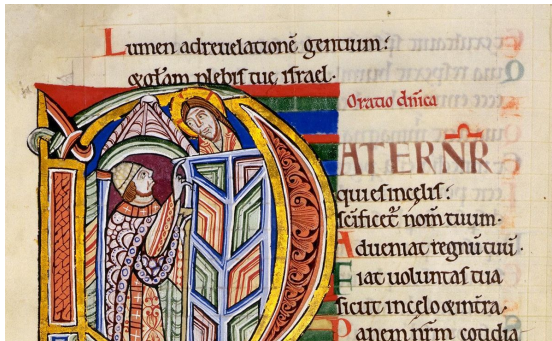 Lumen adreuelationē gentium:
&gl̄am plebis tuę israel.
Oratio dn̄ica
PATERNR̄
qui es incęlis:
sc̄ificet̄ nom̄ tuum.
Adueniat regnū tuū.
Fiat uoluntas tua
sicut incęlo &intra,
Panem nr̄m cotidia